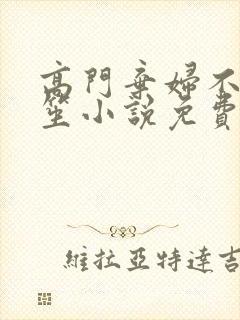 高門棄婦不
笙小說免費
維拉亞特達吉